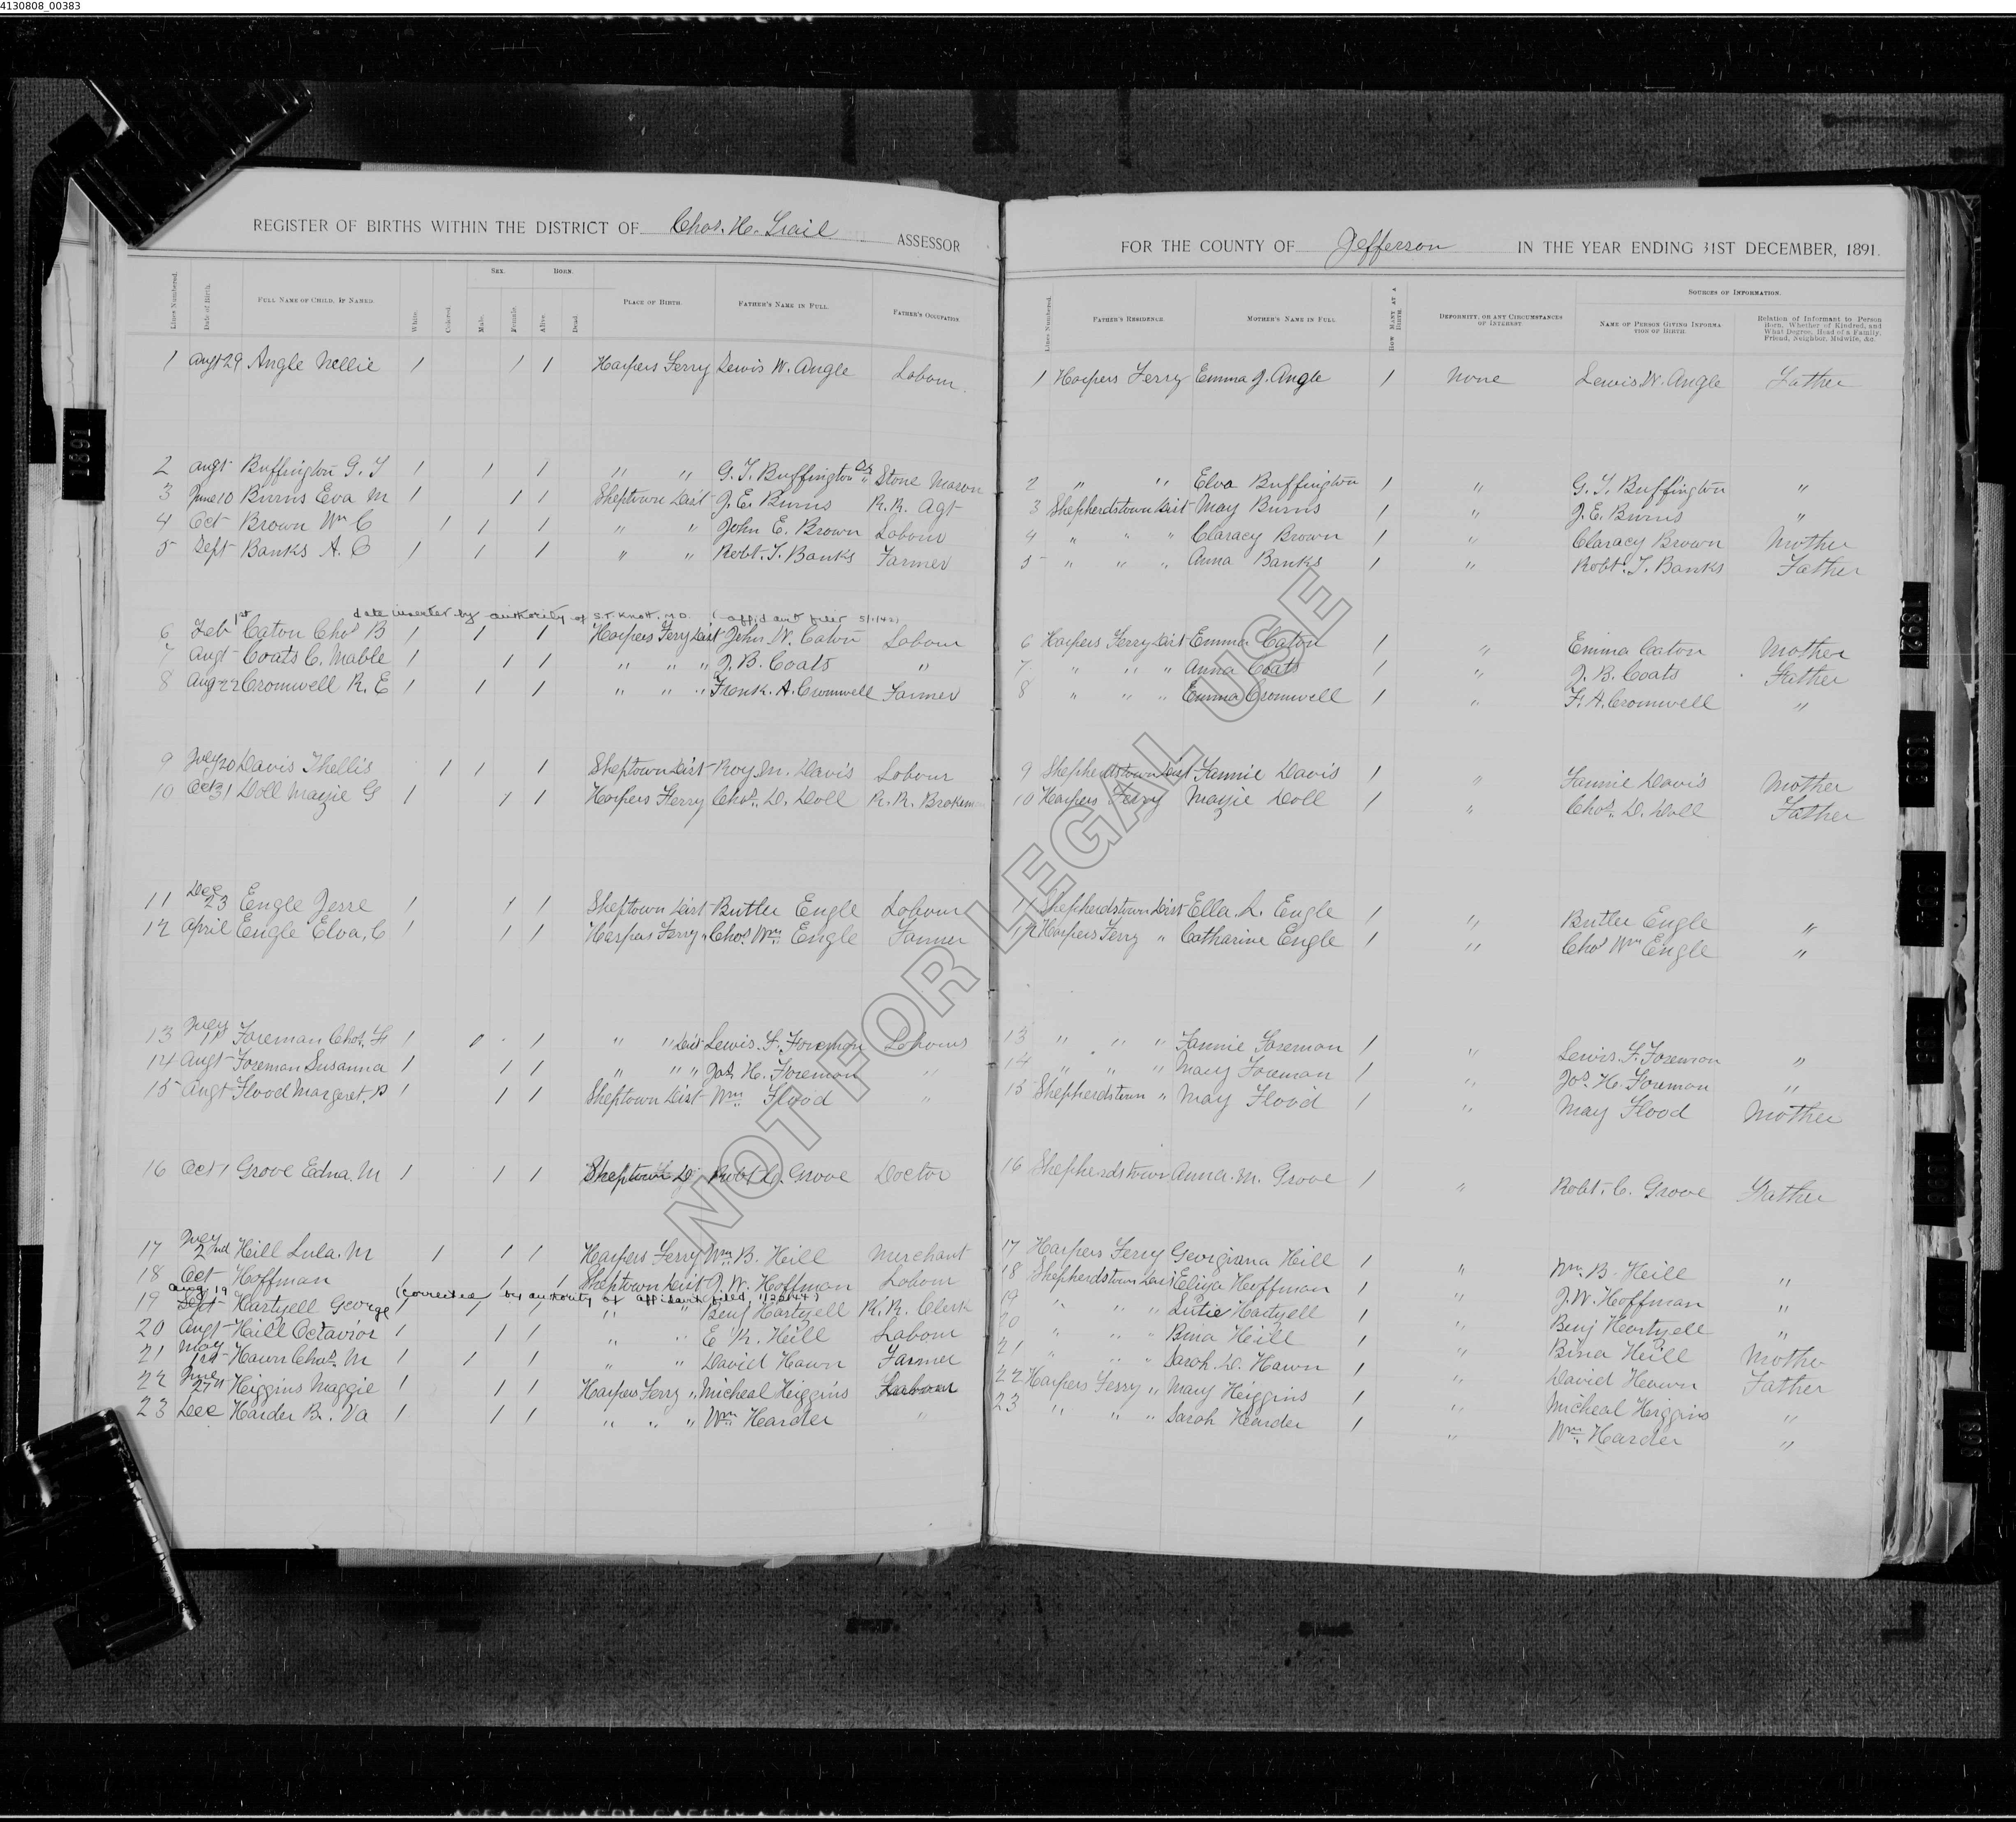 4130808_00383
REGISTER OF BIRTHS WITHIN THE DISTRICT OF Chas. H. Trail ASSESSOR
FOR THE COUNTY OF Jefferson IN THE YEAR ENDING 31ST DECEMBER, 1891.
Lines Numbered. Date of Birth. FULL NAME OF CHILD, IF NAMED. White. Colored. SEX. Male. Female. BORN. Alive. Dead. PLACE OF BIRTH. FATHER'S NAME IN FULL. FATHER'S OCCUPATION
Lines Numbered. FATHER'S RESIDENCE MOTHER'S NAME IN FULL HOW MANY AT A BIRTH. DEFORMITY, OR ANY CIRCUMSTANCES OF INTEREST SOURCES OF INFORMATION. NAME OF PERSON GIVING INFORMATION OF BIRTH Relation of Informant to Person Born, Whether of Kindred, and What Degree, Head of a Family, Friend, Neighbor, Midwife, &c.
1 Augt 29 Angle Nellie 1 1 1 Harpers Ferry Lewis W. Angle Labour 1 Harpers Ferry Emma J. Angle 1 None Lewis W. Angle Father
2 Augt Buffington G. T 1 1 1 " " G. T. Buffington Stone Mason 2 " " Elva Buffington 1 " G. T. Buffington "
3 June 10 Burns Eva M 1 1 1 Sheptown Dist J. E. Burns R. R. Agt 3 Shepherdstown Dist May Burns 1 " J. E. Burns "
4 Oct Brown Wm C 1 1 1 " " John E. Brown Labour 4 " " " Claracy Brown 1 " Claracy Brown Mother
5 Sept Banks A. C 1 1 1 " " Robt. T. Banks Farmer 5 " " " Anna Banks 1 " Robt. T. Banks Father
date inserted by authority of S.T. Knott, M.D. (affidavit filed
6 Feb 1st Caton Chas B 1 1 1 Harpers Ferry Dist John W. Caton Labour 6 Harpers Ferry Dist Emma Caton 1 " Emma Caton Mother
7 Augt Coats C. Mable 1 1 1 " " " J. B. Coats " 7 " " " Anna Coats 1 " J. B. Coats Father
8 Aug 22 Cromwell R. E 1 1 1 " " " Frank. A. Cromwell Farmer 8 " " " Emma Cromwell 1 " F. A. Cromwell "
9 July 20 Davis Thellis 1 1 1 Sheptown Dist Roy M. Davis Labour 9 Shepherdstown Dist Fannie Davis 1 " Fannie Davis Mother
10 Oct 31 Doll Mazie G 1 1 1 Harpers Ferry Chas. D. Doll R. R. Brakeman 10 Harpers Ferry Mazie Doll 1 " Chas. D. Doll Father
11 Dec 23 Engle Jesse 1 1 1 Sheptown Dist Butler Engle Labour 11 Shepherdstown Dist Ella. L. Engle 1 " Butler Engle "
12 April Engle Elva, C 1 1 1 Harpers Ferry " Chas. Wm. Engle Farmer 12 Harpers Ferry " Catharine Engle 1 " Chas Wm Engle "
13 July Foreman Chas. F 1 1 1 " " Dist Lewis. F. Foreman Labour 13 " " " Fannie Foreman 1 " Lewis. F. Foreman "
14 Augt Foreman Susanna 1 1 1 " " " Jos. H. Foreman " 14 " " " Mary Foreman 1 " Jos. H. Foreman "
15 Augt Flood Margeret. 1 1 1 Sheptown Dist Wm. Flood " 15 Shepherdstown " May Flood 1 " May Flood Mother
16 Oct 1 Grove Edna. M 1 1 1 Sheptown D Robt C. Grove Doctor 16 Shepherdstown Anna. M. Grove 1 " Robt. C. Grove Father
17 July 2nd Heill Lula. M 1 1 1 Harpers Ferry Wm. B. Heill Merchant 17 Harpers Ferry Georgiana Heill 1 " Wm. B. Heill "
18 Oct Hoffman 1 1 1 Sheptown Dist J. W. Hoffman Labour 18 Shepherdstown Dist Eliza Hoffman 1 " J. W. Hoffman "
aug 19 (corrected by authority of affidavit filed
19 Sept Hartzell George 1 1 1 " " Benj Hartzell R. R. Clerk 19 " " " Lutie Hartzell 1 " Benj Hartzell "
20 Augt Haill Octavior 1 1 1 " " E. R. Heill Labour 20 " " " Bina Heill 1 " Bina Heill Mother
21 May 1st Hawn Chas. M 1 1 1 " " David Hawn Farmer 21 " " " Sarah. D. Hawn 1 " David Hawn Father
22 June 27 Higgins Maggie 1 1 1 Harpers Ferry " Micheal Higgins Labour 22 Harpers Ferry " Mary Higgins 1 " Micheal Higgins "
23 Dec Harder B. Va 1 1 1 " " " Wm. Harder " 23 " " " Sarah Harder 1 " Wm. Harder "
NOT FOR LEGAL USE
1891
1892